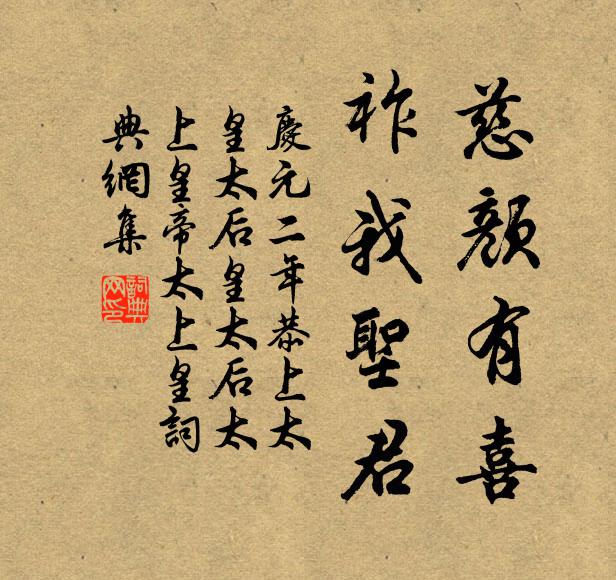 慈顏有喜
祚我聖君
慶元二年恭上太
皇太后皇太后太
上皇帝太上皇詞
典網集
詞典網印